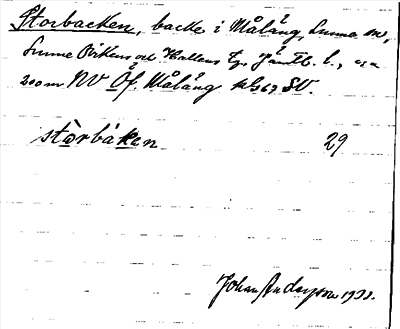 Storbacken, backe i Målång, Sunne sn,
Sunne Oviken och Hallens tg, Jämtl. l., ca
200 m NV Öf. Målång kbl 69 SV.
stòrbáken 29
Johan Andersson 1931.